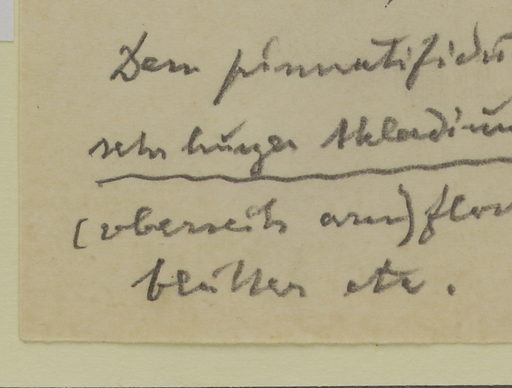 Dem pinnatifidu
sehr kurzer Akladium
(oberseits arm) flor
blätter etc.